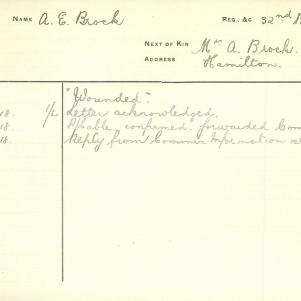 NAME A. E. Brock REG., &C. 32nd B
NEXT OF KIN Mrs A. Brock.
ADDRESS Hamilton.
"Wounded".
18. 1/2 Letter acknowledged.
18. confirmed. forwarded Com
18. Reply from Commn Information